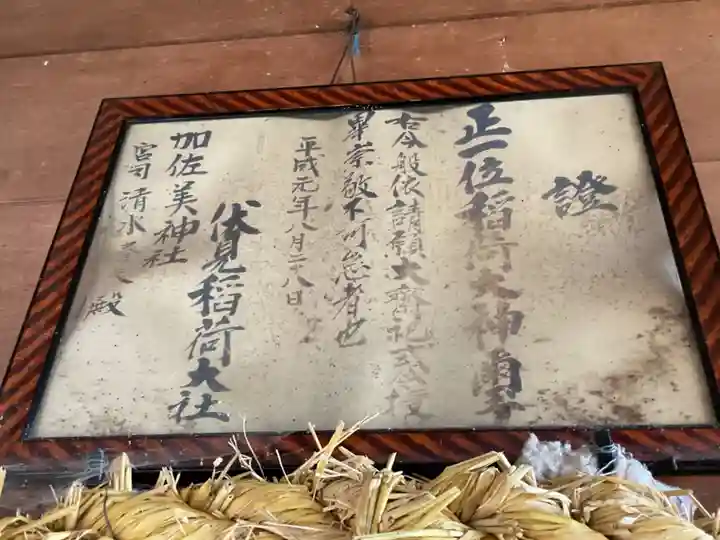 證
正一位稲荷大神
右今般依請願大齋祀式令授
畢崇敬不可怠者也
平成元年八月二十八日
伏見稲荷大社
加佐美神社
宮司 清水 殿